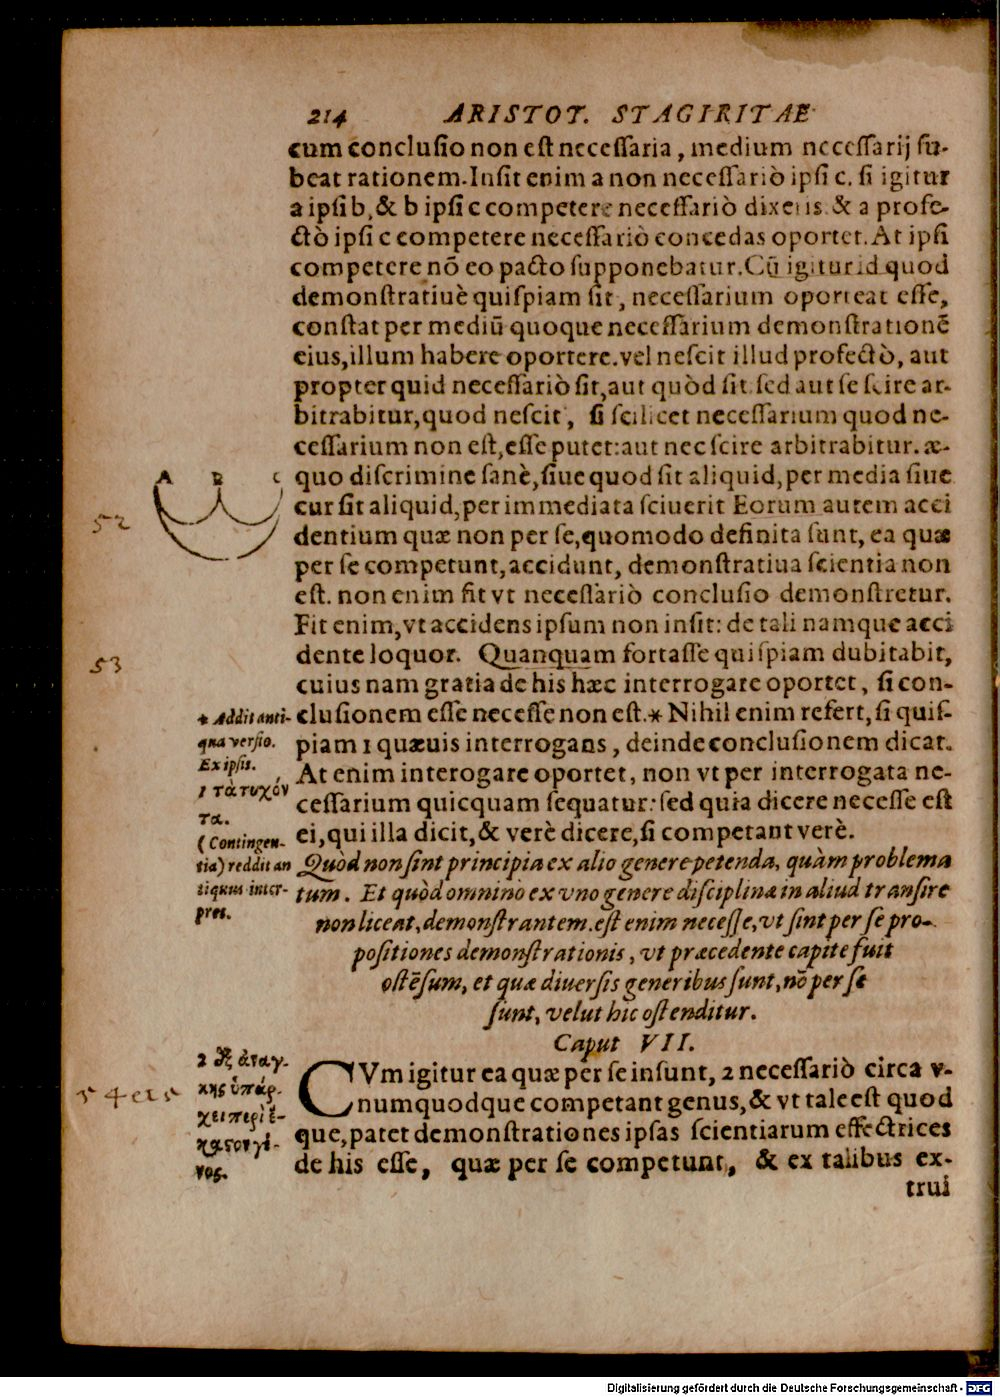 214 ARISTOT. STAGIRITAE
cum conclusio non est necessaria, medium necessarij su-
beat rationem. Insit enim a non necessariò ipsi c. si igitur
a ipsi b, & b ipsi c competere necessariò dixeris & a profe-
ctò ipsi c competere necessariò concedas oportet. At ipsi
competere nõ eo pacto supponebatur. Cũ igitur id quod
demonstratiuè quispiam sit, necessarium oporteat esse,
constat per mediũ quoque necessarium demonstrationẽ
eius, illum habere oportere. vel nescit illud profectò, aut
propter quid necessariò sit, aut quòd sit. sed aut se scire ar-
bitrabitur, quod nescit, si scilicet necessarium quod ne-
cessarium non est, esse putet: aut nec scire arbitrabitur. æ-
quo discrimine sanè, siue quod sit aliquid, per media siue
cur sit aliquid, per immediata sciuerit Eorum autem acci
dentium quæ non per se, quomodo definita sunt, ea quæ
per se competunt, accidunt, demonstratiua scientia non
est. non enim fit vt necessariò conclusio demonstretur.
Fit enim, vt accidens ipsum non insit: de tali namque acci
dente loquor. Quanquam fortasse quispiam dubitabit,
cuius nam gratia de his hæc interrogare oportet, si con-
clusionem esse necesse non est.* Nihil enim refert, si quis-
piam 1 quæuis interrogans, deinde conclusionem dicat.
At enim interogare oportet, non vt per interrogata ne-
cessarium quicquam sequatur: sed quia dicere necesse est
ei, qui illa dicit, & verè dicere, si competant verè.
Quòd non sint principia ex alio genere petenda, quàm problema
tum. Et quòd omnino ex vno genere disciplinæ in aliud transire
non liceat, demonstrantem. est enim necesse, vt sint per se pro-
positiones demonstrationis, vt præcedente capite fuit
ostẽsum, et quæ diuersis generibus sunt, nõ per se
sunt, velut hic ostenditur.
Caput VII.
CVm igitur ea quæ per se insunt, 2 necessariò circa v-
numquodque competant genus, & vt tale est quod
que, patet demonstrationes ipsas scientiarum effectrices
de his esse, quæ per se competunt, & ex talibus ex-
trui
A B C
52
53
* Addit anti-
qua versio.
Ex ipsis.
1 τὰ τυχόν
τα.
(Contingen-
tia) reddit an
tiquus inter-
pres.
2 ἐξ ἀναγ-
κης ὑπάρ-
χει περὶ ἕ-
καστον γέ-
νος.
54
Digitalisierung gefördert durch die Deutsche Forschungsgemeinschaft - DFG